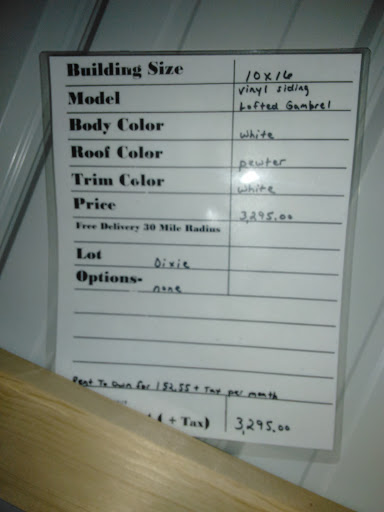 Building Size 10x16
Model vinyl siding
Lofted Gambrel
Body Color white
Roof Color pewter
Trim Color white
Price 3,295.00
Free Delivery 30 Mile Radius
Lot Dixie
Options- none
Rent To Own for 152.55 + Tax per month
( + Tax) 3,295.00